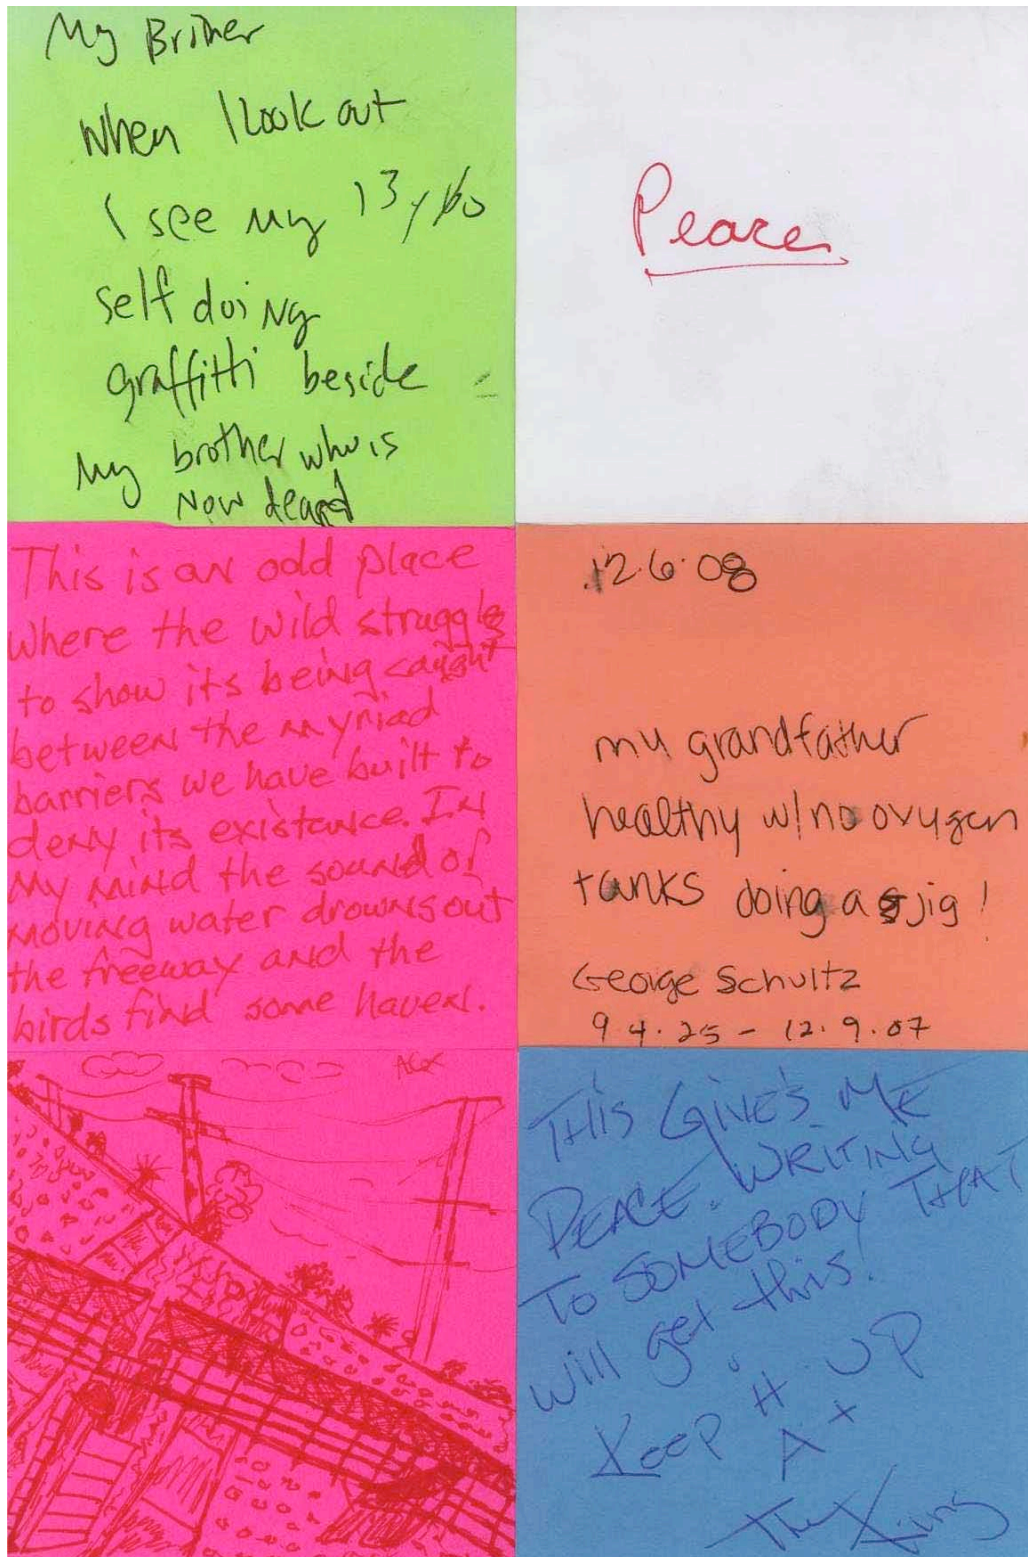 My Brither
When I look out
I see my 13 y/o
self doing
graffitti beside
My brother who is
Now dead
Peace
This is an odd place
where the wild struggles
to show its being caught
between the myriad
barriers we have built to
deny its existance. In
my mind the sound of
moving water drowns out
the freeway and the
birds find some haven.
12.6.08
my grandfather
healthy w/no oxygen
tanks doing a jig!
George Schultz
9 4.25 - 12.9.07
THIS GIVE'S ME
PEACE. WRITING
TO SOMEBODY THAT
will get this!
Keep it UP
A+